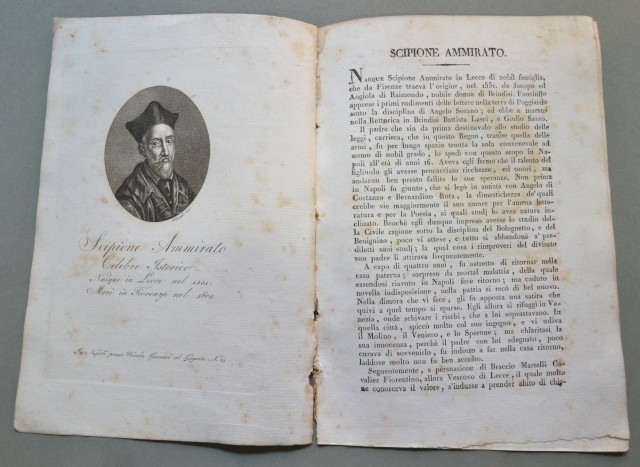 Scipione Ammirato
Celebre Istorico
Nacque in Lecce nel 1531.
Morì in Fiorenza nel 1601.
Napoli presso Nicola Gervasi al Gigante N.° 23
SCIPIONE AMMIRATO.
NACQUE Scipione Ammirato in Lecce di nobil famiglia,
che da Firenze traeva l'origine, nel 1531. da Jacopo ed
Angiola di Raimondo, nobile donna di Brindisi. Fanciullo
apprese i primi rudimenti delle lettere nella terra di Poggiardo
sotto la disciplina di Angelo Sorano; ed ebbe a maestri
nella Rettorica in Brindisi Battista Lasci, e Giulio Sasso.
Il padre che sin da prima destinavalo allo studio delle
leggi, carriera, che in questo Regno, trattine quella delle
armi, fu per lungo spazio tenuta la sola convenevole ad
uomo di nobil grado, lo spedì con questo scopo in Napoli
all'età di anni 16. Aveva egli fermo che il talento del
figliuolo gli avesse procacciato ricchezze, ed onori, ma
andaron ben presto fallite le sue speranze. Non prima
in Napoli fu giunto, che si legò in amistà con Angelo di
Costanzo e Bernardino Rota, la dimestichezza de' quali
crebbe vie maggiormente il suo amore per l'amena letteratura
e per la Poesia, ai quali studj lo avea natura inclinato.
Benchè egli dunque impreso avesse lo studio della
Civile ragione sotto la disciplina del Bolognetto, e del
Benignino, poco vi attese, e tutto si abbandonò a' prediletti
suoi studj; la qual cosa i rimproveri del divisato
suo padre li attirava frequentemente.
A capo di quattro anni, fu astretto di ritornar nella
casa paterna; sorpreso da mortal malattia, delle quale
essendosi riavuto in Napoli fece ritorno; ma caduto in
novella indisposizione, nella patria si recò di bel nuovo.
Nella dimora che vi fece, gli fu apposta una satira che
quivi a quel tempo si sparse. Egli allora si rifaggì in Venezia,
onde schivare i rischi, che a lui soprastavano. In
quella città, spiccò molto col suo ingegno, e vi udiva
il Molino, il Veniero, e lo Sperone; ma chiaritasi la
sua innocenza, perchè il padre con lui sdegnato, poco
curava di sovvenirlo, fu indotto a far nella casa ritorno,
laddove molto non fu ben accolto.
Seguentemente, a persuasione di Braccio Martelli Cavalier
Fiorentino, allora Vescovo di Lecce, il quale molto
ne conosceva il valore, s'indusse a prender abito di chie-